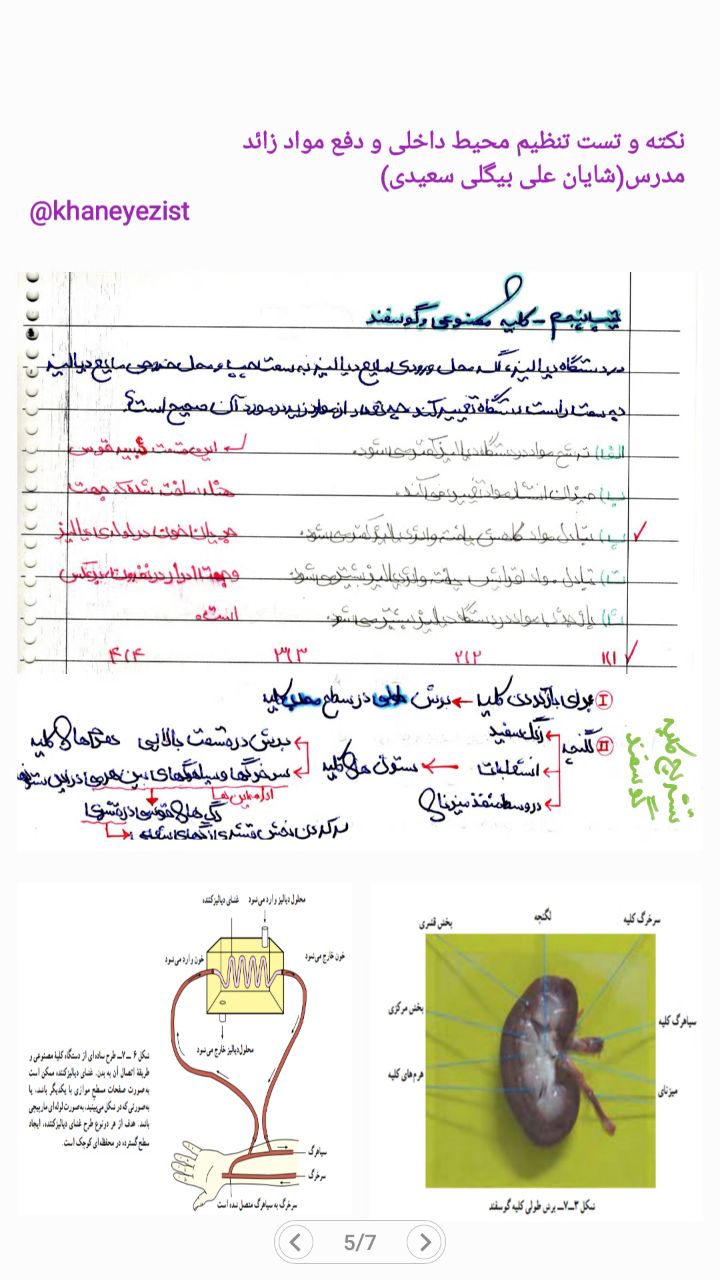 نکته و تست تنظیم محیط داخلی و دفع مواد زائد
مدرس(شایان علی بیگلی سعیدی)
@khaneyezist
کلیه مصنوعی و گوسفند
در دستگاه دیالیز، اگر محل ورودی مایع دیالیز به سمت چپ و محل خروجی مایع دیالیز
به سمت راست دستگاه تغییر کند چه تعداد از موارد زیر در مورد آن صحیح است؟
الف) ترشح مواد در دستگاه دیالیز کمتر می‌شود.
ب) میزان انتشار مواد تغییر نمی‌کند.
پ) تبادل مواد کاهش یافته و اثر دیالیز کمتر می‌شود.
ت) تبادل مواد افزایش یافته و اثر دیالیز بیشتر می‌شود.
ث) بازجذب مواد در دستگاه دیالیز بیشتر می‌شود.
این قسمت شبیه قوس
هنله ساخت شده که جهت
جریان خون در
و جهت ادرار در نفرون
است.
۱(۱ ۲(۲ ۳(۳ ۴(۴
I برای بازکردن کلیه ← برش طولی در سطح محدب کلیه
II لگنچه
رنگ سفید
انشعابات
در وسط منفذ میزنای
ستون های کلیه
برش در قسمت بالایی هرم‌های کلیه
سرخرگ‌ها و سیاهرگ‌های بین هرمی در این ستون‌ها
ادامه این‌ها
رگ های قوسی در قشری
تشریح کلیه
گوسفند
محلول دیالیز وارد می‌شود
غشای دیالیزکننده
خون خارج می‌شود
خون وارد می‌شود
محلول دیالیز خارج می‌شود
سیاهرگ
سرخرگ
سرخرگ به سیاهرگ متصل شده است
شکل ۶ـ۷ـ طرح ساده‌ای از دستگاه کلیهٔ مصنوعی و
طریقهٔ اتصال آن به بدن. غشای دیالیزکننده ممکن است
به‌صورت صفحات مسطح موازی با یکدیگر باشد، یا
به‌صورتی که در شکل می‌بینید، به‌صورت لوله‌ای مارپیچی
باشد. هدف از هر دو نوع طرح غشای دیالیزکننده، ایجاد
سطح گسترده در محفظه‌ای کوچک است.
سرخرگ کلیه
لگنچه
بخش قشری
بخش مرکزی
سیاهرگ کلیه
هرم‌های کلیه
میزنای
شکل ۳ـ۷ـ برش طولی کلیه گوسفند
5/7